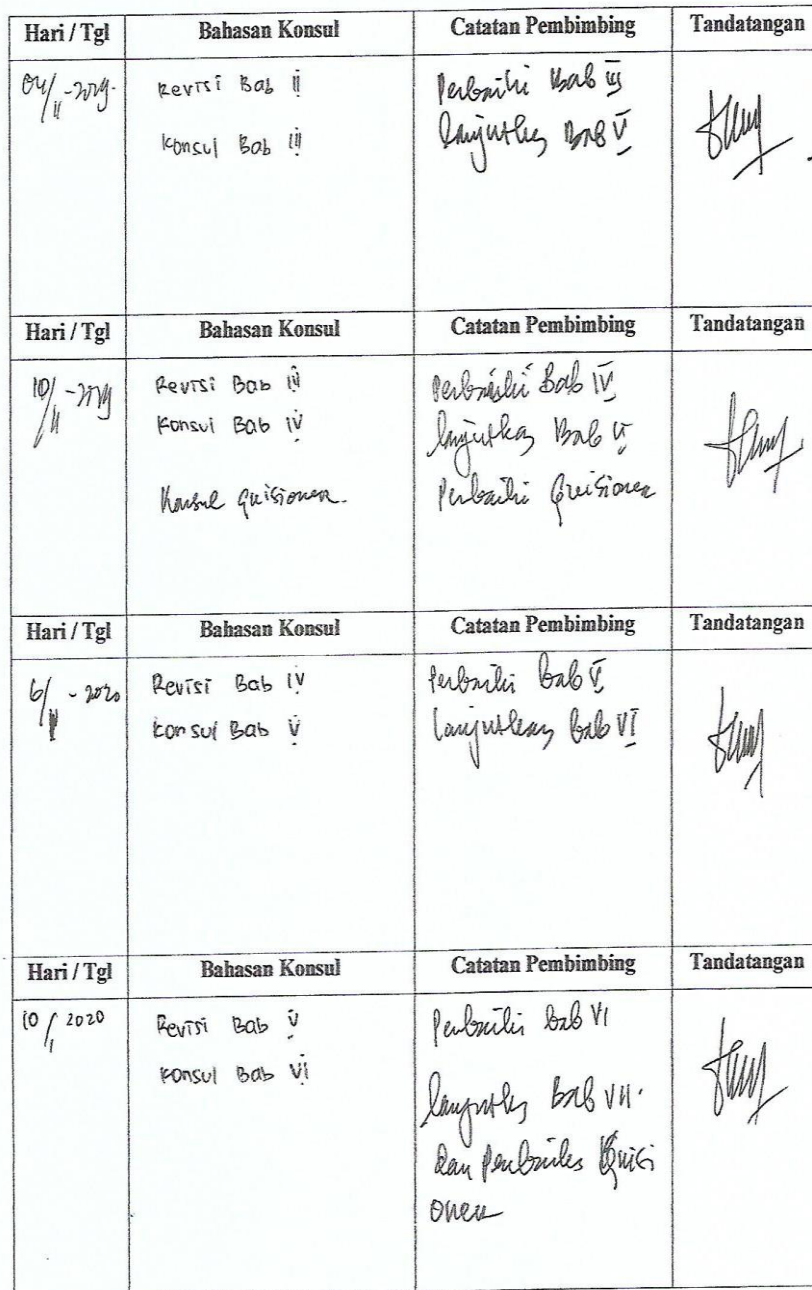 Hari / Tgl Bahasan Konsul Catatan Pembimbing Tandatangan
04/11 - 2019. Revisi Bab II Perbaiki Bab III
Konsul Bab III lanjutkan Bab V
Hari / Tgl Bahasan Konsul Catatan Pembimbing Tandatangan
10/11 - 2019 Revisi Bab III Perbaiki Bab IV
Konsul Bab IV lanjutkan Bab V
Konsul Quisioner. Perbaiki Quisioner
Hari / Tgl Bahasan Konsul Catatan Pembimbing Tandatangan
6/ - 2020 Revisi Bab IV Perbaiki bab V
konsul Bab V lanjutkan bab VI
Hari / Tgl Bahasan Konsul Catatan Pembimbing Tandatangan
10/1 2020 Revisi Bab V Perbaiki bab VI
konsul Bab VI
lanjutkan Bab VII.
dan Perbaikan Quisi
oner